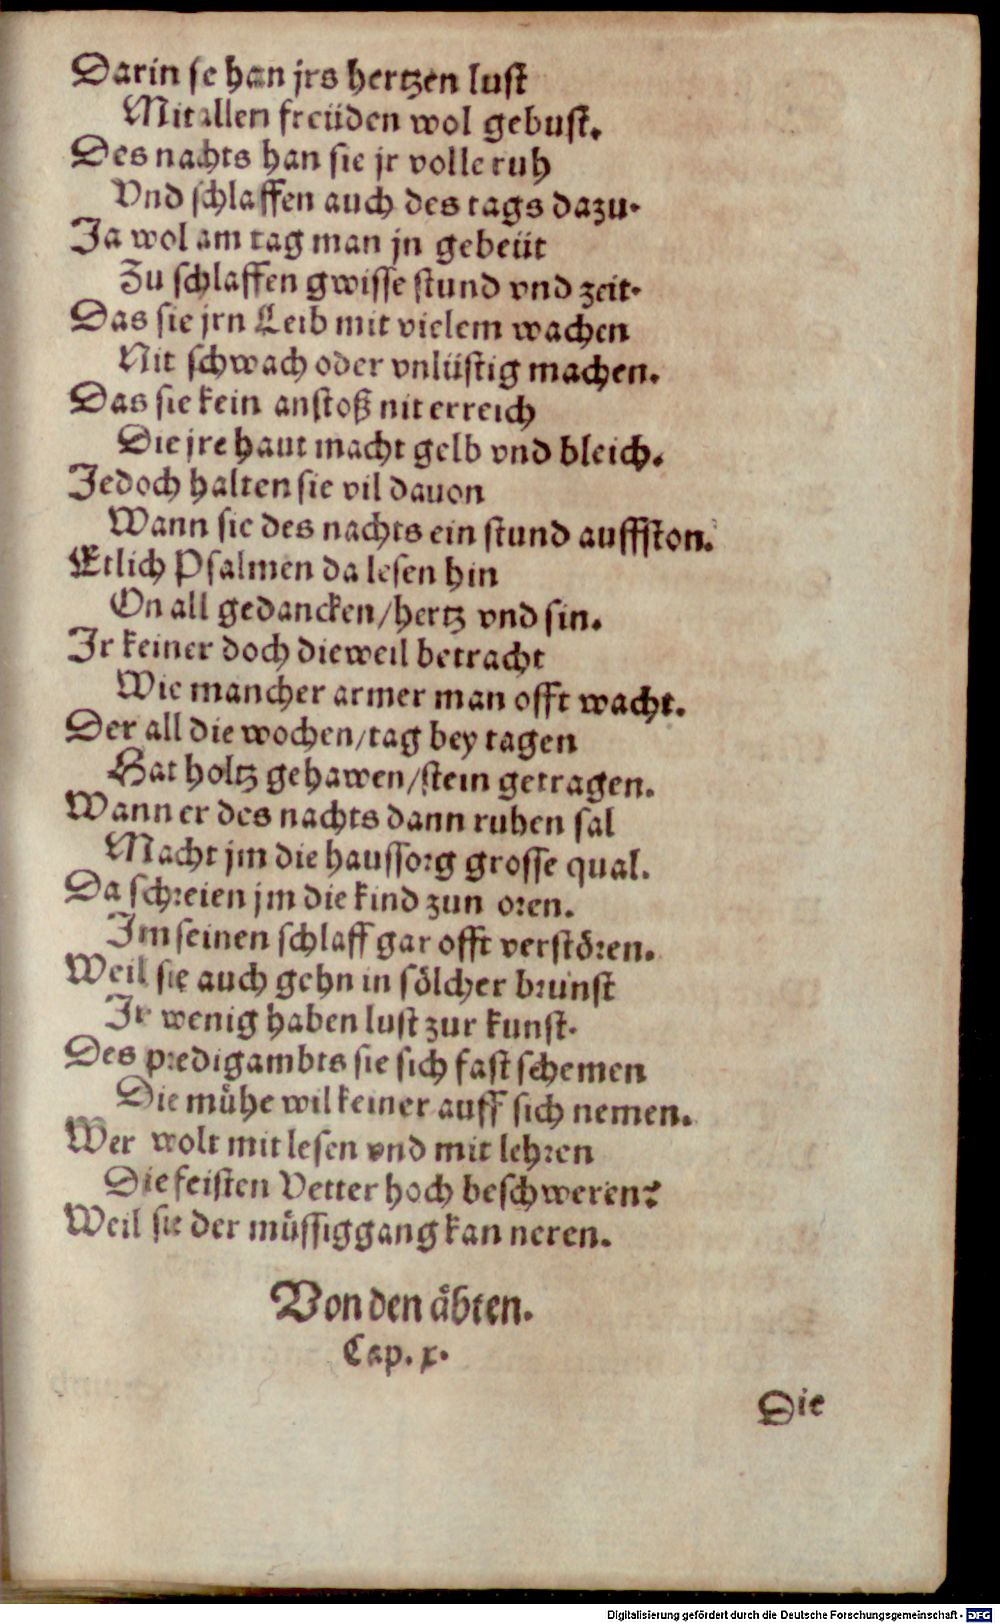 Darin se han jrs hertzen lust
Mit allen freüden wol gebust.
Des nachts han sie jr volle ruh
Vnd schlaffen auch des tags dazu.
Ja wol am tag man jn gebeüt
Zu schlaffen gwisse stund vnd zeit.
Das sie jrn Leib mit vielem wachen
Nit schwach oder vnlüstig machen.
Das sie kein anstoß nit erreich
Die jre haut macht gelb vnd bleich.
Jedoch halten sie vil dauon
Wann sie des nachts ein stund auffston.
Etlich Psalmen da lesen hin
On all gedancken/hertz vnd sin.
Jr keiner doch dieweil betracht
Wie mancher armer man offt wacht.
Der all die wochen/tag bey tagen
Hat holtz gehawen/stein getragen.
Wann er des nachts dann ruhen sal
Macht jm die haussorg grosse qual.
Da schreien jm die kind zun oren.
Jm seinen schlaff gar offt verstören.
Weil sie auch gehn in sölcher brunst
Jr wenig haben lust zur kunst.
Des predigambts sie sich fast schemen
Die mühe wil keiner auff sich nemen.
Wer wolt mit lesen vnd mit lehren
Die feisten Vetter hoch beschweren?
Weil sie der müssiggang kan neren.
Von den äbten.
Cap. x.
Die
Digitalisierung gefördert durch die Deutsche Forschungsgemeinschaft - DFG